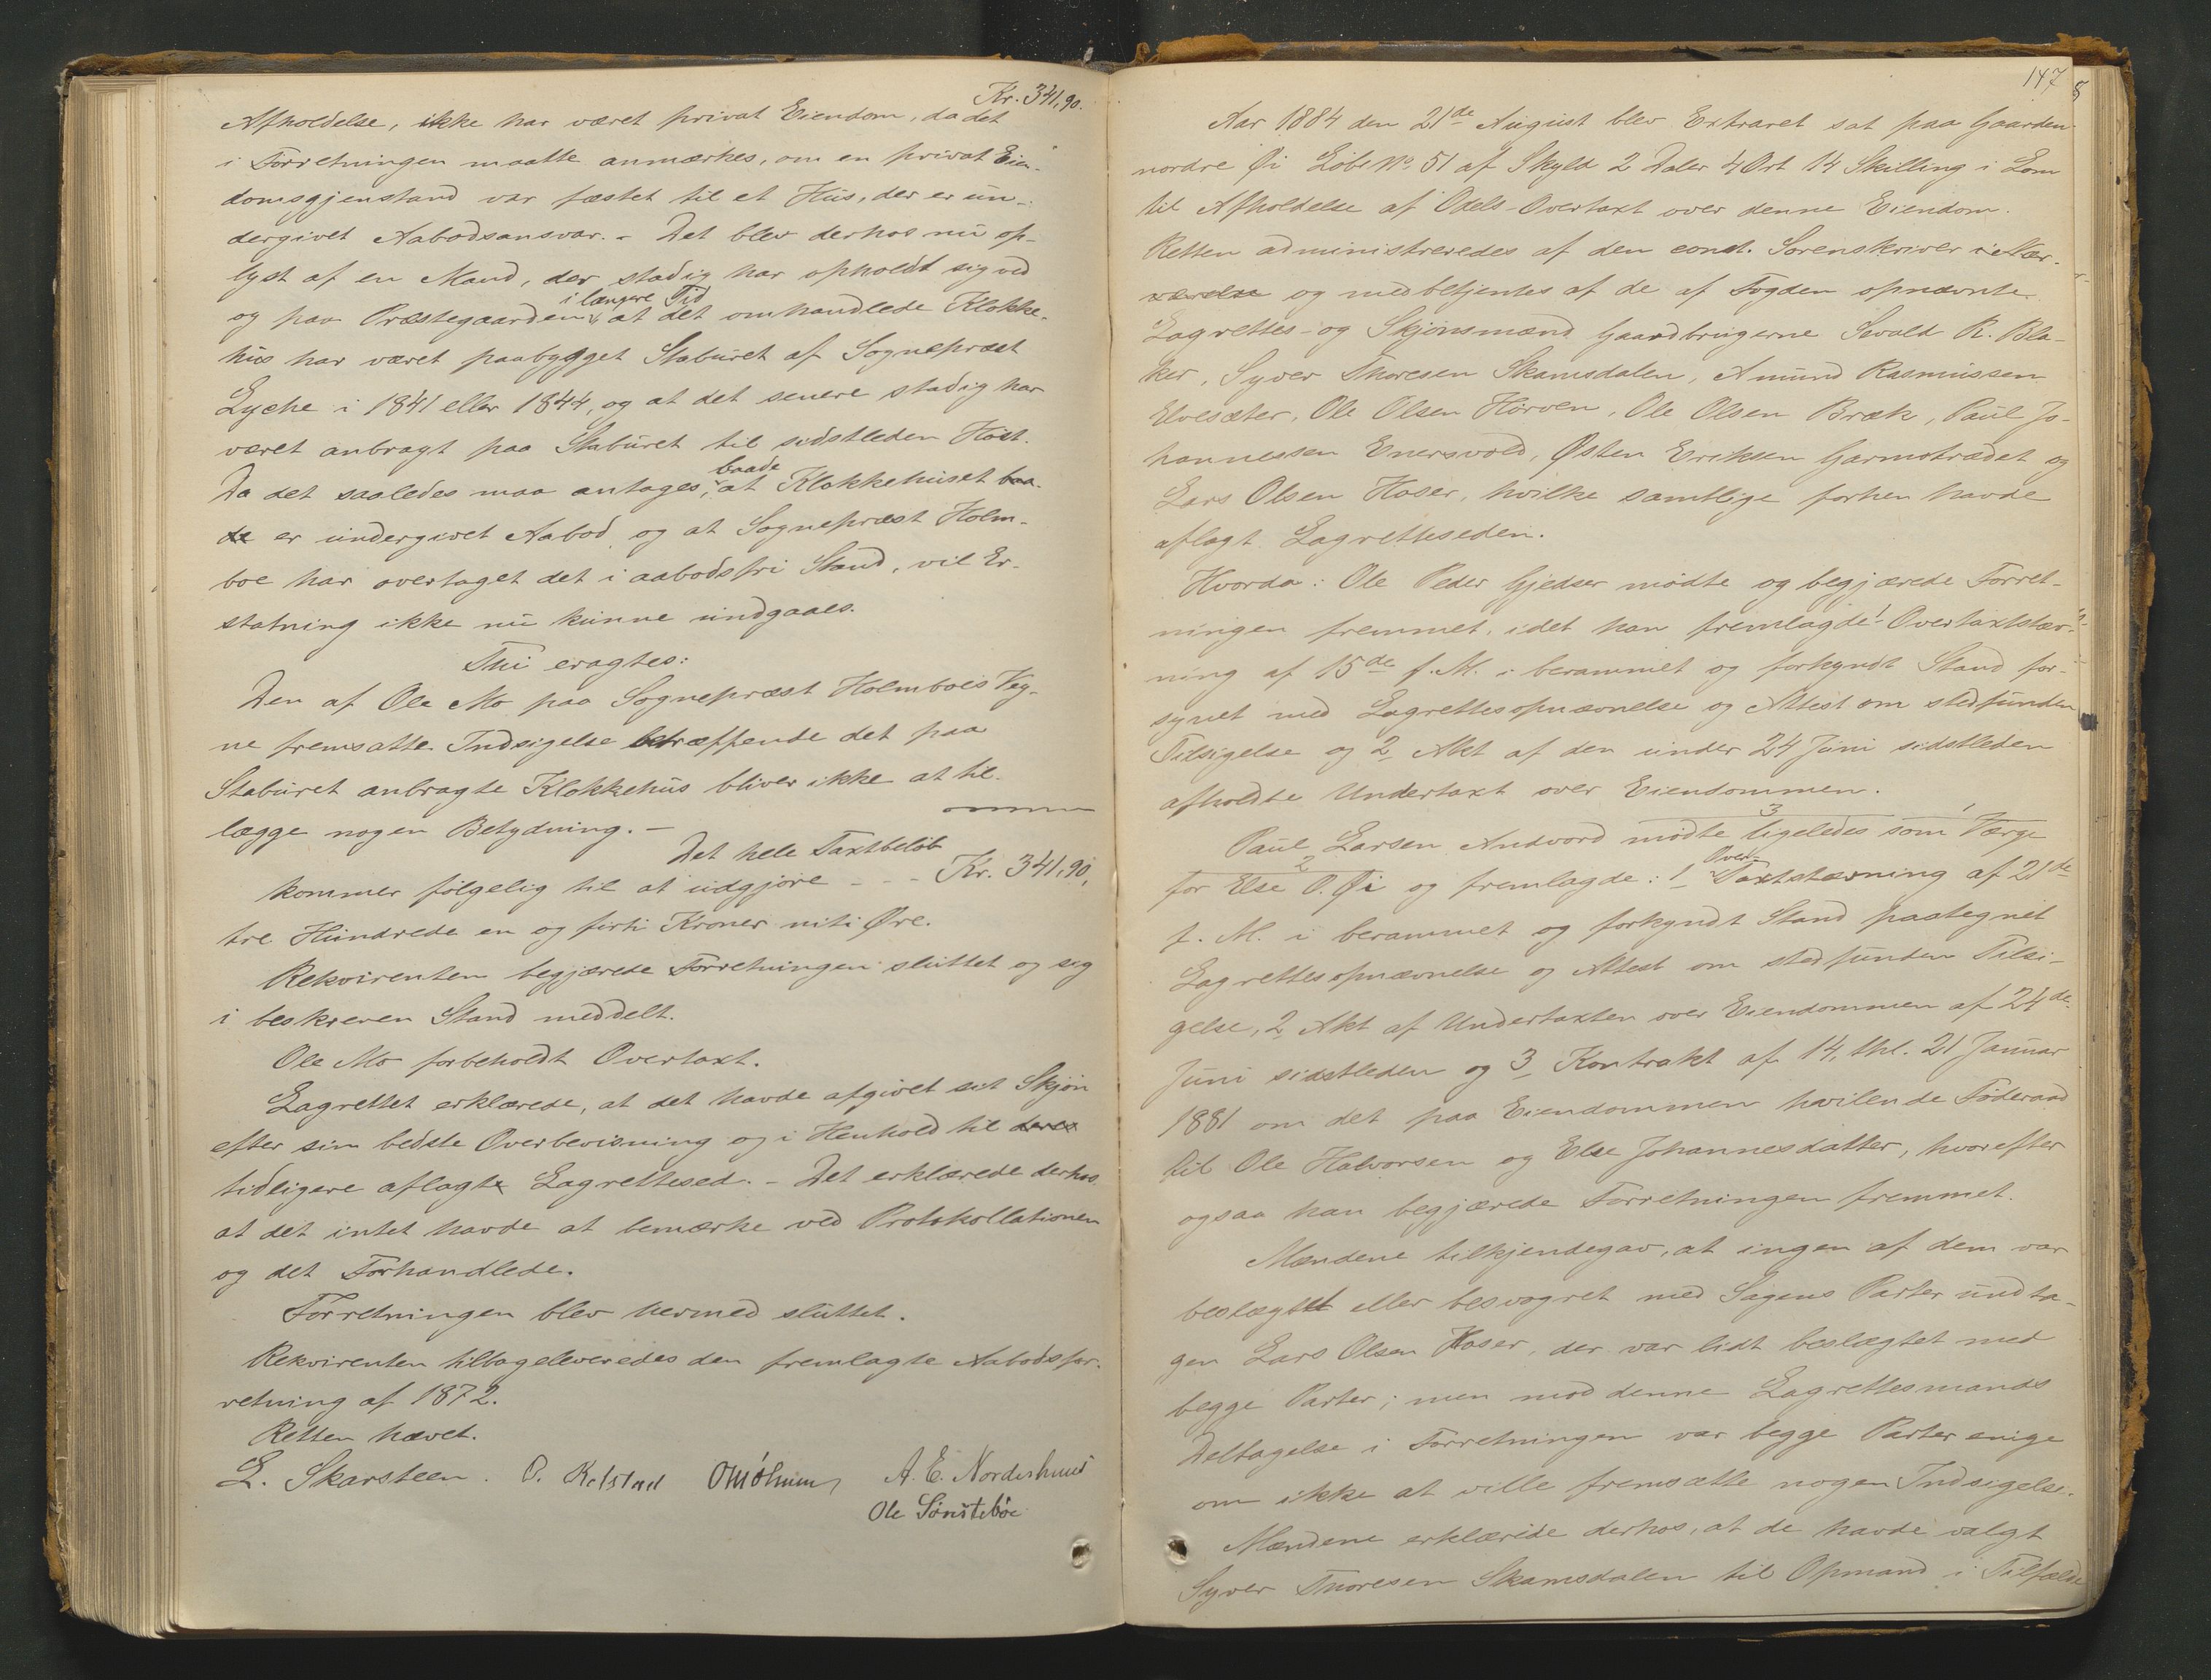 Kr. 341,90.
Afholdelse, ikke har været privat Eiendom, da det
i Forretningen maatte anmærkes, om en privat Eien-
domsgjenstand var fæstet til et Hus, der er un-
dergivet Aabodsansvar. – Det blev derhos nu op-
lyst af en Mand, der stadig har opholdt sig ved
og paa Præstegaarden i længere Tid, at det omhandlede Klokke-
hus har været paabygget Staburet af Sognepræst
Lyche i 1841 eller 1844, og at det senere stadig har
været anbragt paa Staburet til sidstleden Høst.
Da det saaledes maa antages, baade at Klokkehuset baa-
de er undergivet Aabod og at Sognepræst Holm-
boe har overtaget det i aabodsfri Stand, vil Er-
statning ikke nu kunne undgaaes.
Thi eragtes:
Den af Ole Mo paa Sognepræst Holmboes Veg-
ne fremsatte Indsigelse betræffende det paa
Staburet anbragte Klokkehus bliver ikke at til-
lægge nogen Betydning. –
Det hele Taxtbeløb
kommer følgelig til at udgjøre - - - Kr. 341,90,
tre Hundrede en og firti Kroner niti Øre.
Rekvirenten begjærede Forretningen sluttet og sig
i beskreven Stand meddelt.
Ole Mo forbeholdt Overtaxt.
Lagrettet erklærede, at det havde afgivet sit Skjøn
efter sin bedste Overbevisning og i Henhold til deres
tidligere aflagte Lagrettesed. – Det erklærede derhos
at det intet havde at bemærke ved Protokollationen
og det Forhandlede.
Forretningen blev hermed sluttet.
Rekvirenten tilbageleveredes den fremlagte Aabodsfor-
retning af 1872.
Retten hævet.
L. Skarsteen. P. Kolstad A. E. Nordshuus
Ole Sønstebøe
147
Aar 1884 den 21de August blev Extraret sat paa Gaarden
nordre Øi Løbe No. 51 af Skyld 2 Daler 4 Ort 14 Skilling i Lom
til Afholdelse af Odels-Overtaxt over denne Eiendom.
Retten administreredes af den const. Sorenskriver i Nær-
værelse og medbetjentes af de af Fogden opnævnte
Lagrettes- og Skjønsmænd Gaardbrugerne Sivald R. Bla-
ker, Syver Thoresen Skamsdalen, Amund Rasmussen
Elvesæter, Ole Olsen Hørven, Ole Olsen Bræk, Paul Jo-
hannessen Enersvold, Østen Eriksen Garmotrædet og
Lars Olsen Hoser, hvilke samtlige forhen havde
aflagt Lagretteseden.
Hvorda: Ole Peder Gjedser mødte og begjærede Forret-
ningen fremmet, idet han fremlagde 1 Overtaxtstæv-
ning af 15de f. M. i berammet og forkyndt Stand for-
synet med Lagrettesopnævnelse og Attest om stedfunden
Tilsigelse og 2 Akt af den under 24 Juni sidstleden
afholdte Undertaxt over Eiendommen.
Paul Larsen Andvord mødte ligeledes som Værge
for Else O. Øi og fremlagde: 1 Over-Taxtstævning af 21de
f. M. i berammet og forkyndt Stand paategnet
Lagrettesopnævnelse og Attest om stedfunden Tilsi-
gelse, 2 Akt af Undertaxten over Eiendommen af 24de
Juni sidstleden og 3 Kontrakt af 14, thl. 21 Januar
1881 om det paa Eiendommen hvilende Føderaad
til Ole Halvorsen og Else Johannesdatter, hvorefter
ogsaa han begjærede Forretningen fremmet.
Mændene tilkjendegav, at ingen af dem var
beslægtet eller besvogret med Sagens Parter undta-
gen Lars Olsen Hoser, der var lidt beslægtet med
begge Parter; men mod denne Lagrettesmands
Deltagelse i Forretningen var begge Parter enige
om ikke at ville fremsætte nogen Indsigelse.
Mændene erklærede derhos, at de havde valgt
Syver Thoresen Skamsdalen til Opmand i Tilfælde